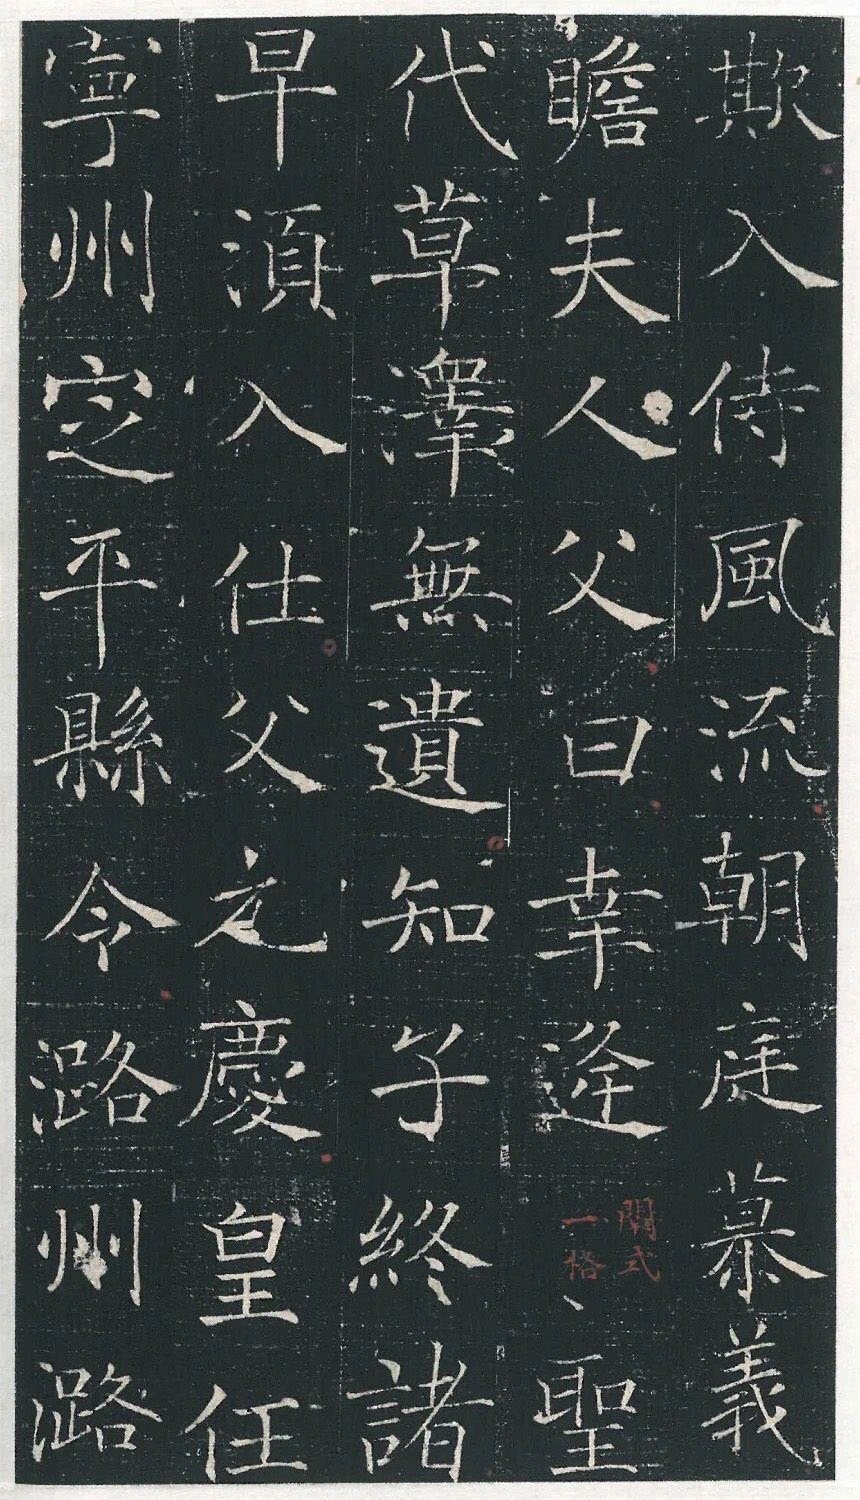 欺入侍風流朝庭慕義
瞻夫人父曰幸逢聖
一格
代草澤無遺知子終諸
早須入仕父之慶皇任
寧州定平縣令潞州潞